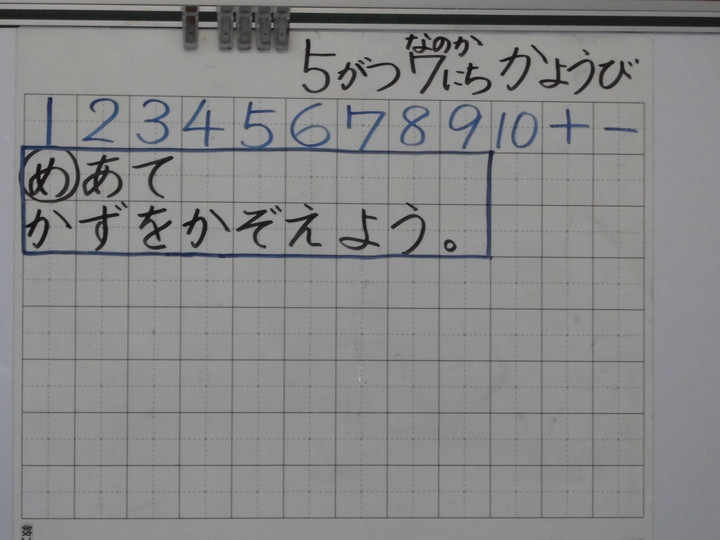 なのか
5がつ7にちかようび
1 2 3 4 5 6 7 8 9 10 + −
めあて
かずをかぞえよう。